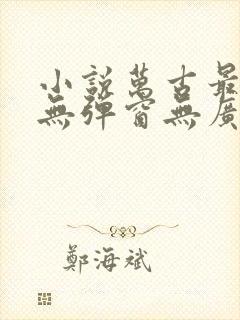 小說萬古最
無彈窗無廣
鄭海斌